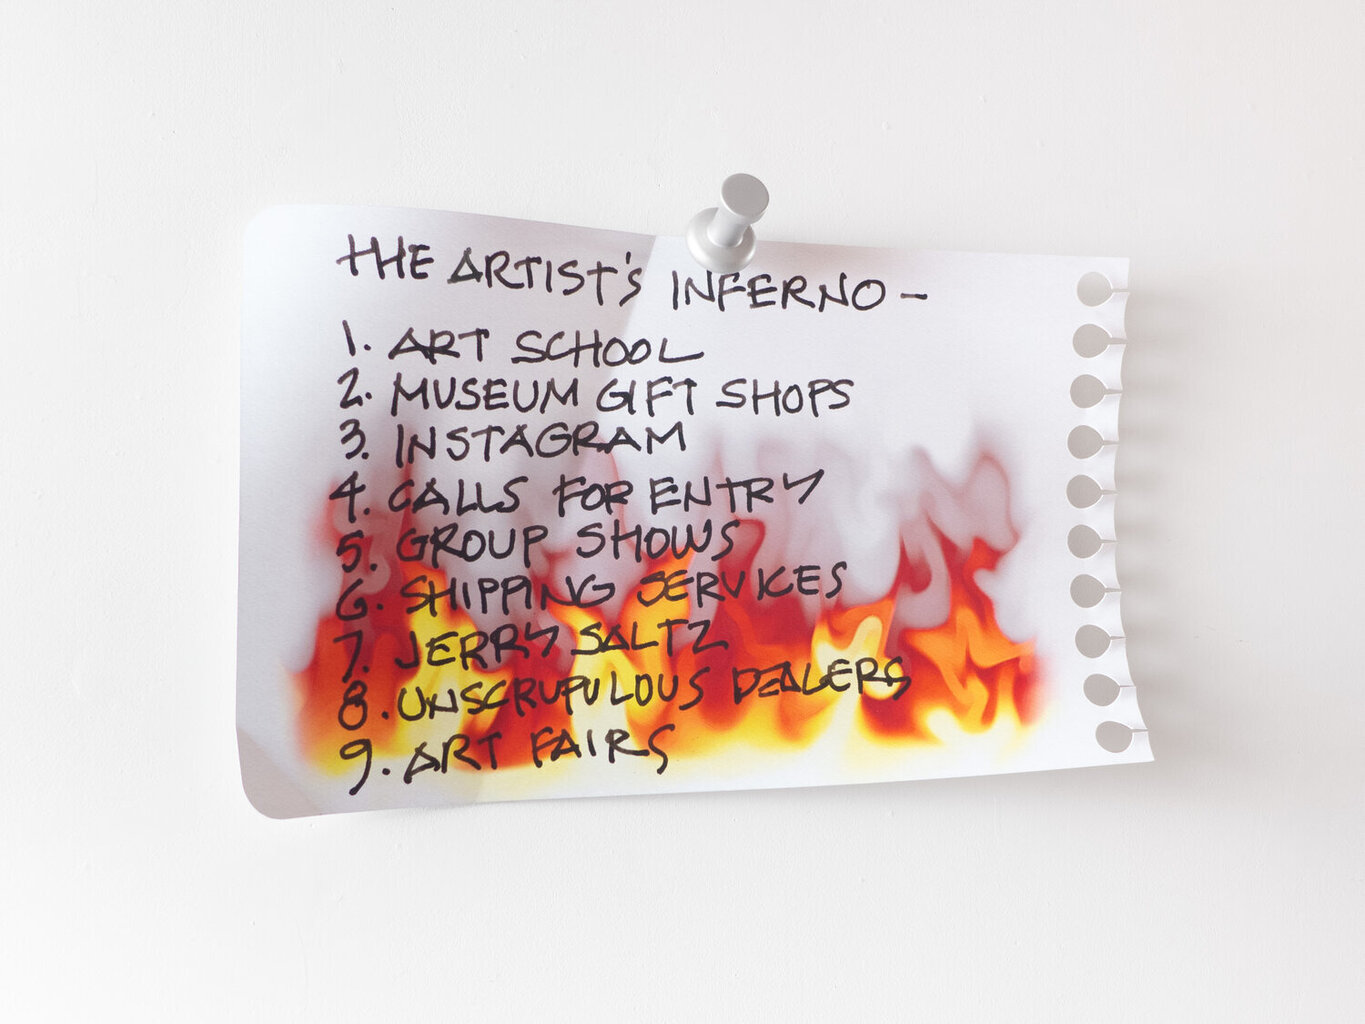 THE ARTIST'S INFERNO –
1. ART SCHOOL
2. MUSEUM GIFT SHOPS
3. INSTAGRAM
4. CALLS FOR ENTRY
5. GROUP SHOWS
6. SHIPPING SERVICES
7. JERRY SALTZ
8. UNSCRUPULOUS DEALERS
9. ART FAIRS